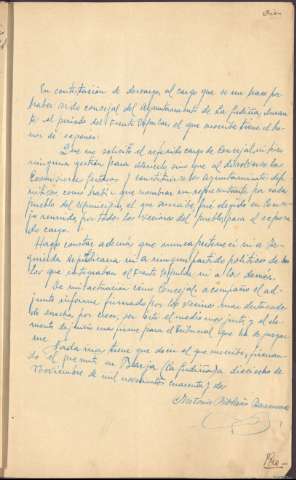 En contestación de descargo, al cargo que se me hace por
haber sido concejal del Ayuntamiento de La Gudiña, duran
te el periodo del Frente Popular, el que suscribe tiene el ho
nor de exponer:
Que no solicitó el referido cargo de Concejal, ni hizo
ninguna gestión para obtenerlo sino que al disolverse las
Comisiones gestoras y constituirse los Ayuntamientos defi
nitivos como había que nombrar un representante por cada
pueblo del municipio, el que suscribe fué elegido en Conce
jo reunido por todos los vecinos del pueblo para el expresa
do cargo.
Hago constar además que nunca pertenecí ni a Iz
quierda Republicana ni a ningun partido politico de los
les que integraban el Frente Popular ni a los demás.
De mi actuación como Concejal, acompaño el ad
junto informe formado por los vecinos mas destacados
de derecha por creer, ser este el medio mas justo y el ele
mento de juicio mas firme para el Tribunal que ha de juzgar
me.
Nada mas tiene que decir el que suscribe, firman
do el presente en Barja (La Gudiña) a dieciocho de
Noviembre de mil novecientos cuarenta y dos
Antonio